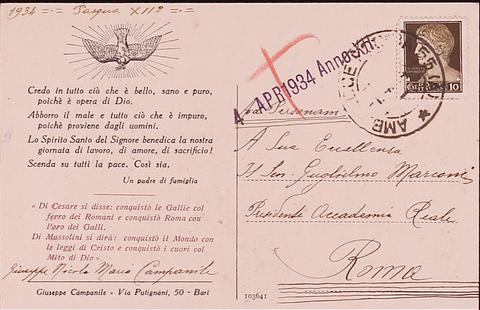 1934 =·= Pasqua XIIº =·=
Credo in tutto ciò che è bello, sano e puro,
poichè è opera di Dio.
Abborro il male e tutto ciò che è impuro,
poichè proviene dagli uomini.
Lo Spirito Santo del Signore benedica la nostra
giornata di lavoro, di amore, di sacrificio!
Scenda su tutti la pace. Così sia.
Un padre di famiglia
« Di Cesare si disse: conquistò le Gallie col
ferro dei Romani e conquistò Roma con
l'oro dei Galli.
Di Mussolini si dirà: conquistò il Mondo con
le leggi di Cristo e conquistò i cuori col
Mito di Dio»
Giuseppe Nicola Maria Campanile
Giuseppe Campanile - Via Putignani, 50 - Bari
4 APR 1934 Anno XII
10
A Sua Eccellenza
Il Sen. Guglielmo Marconi
Presidente Accademia Reale
Roma
103641